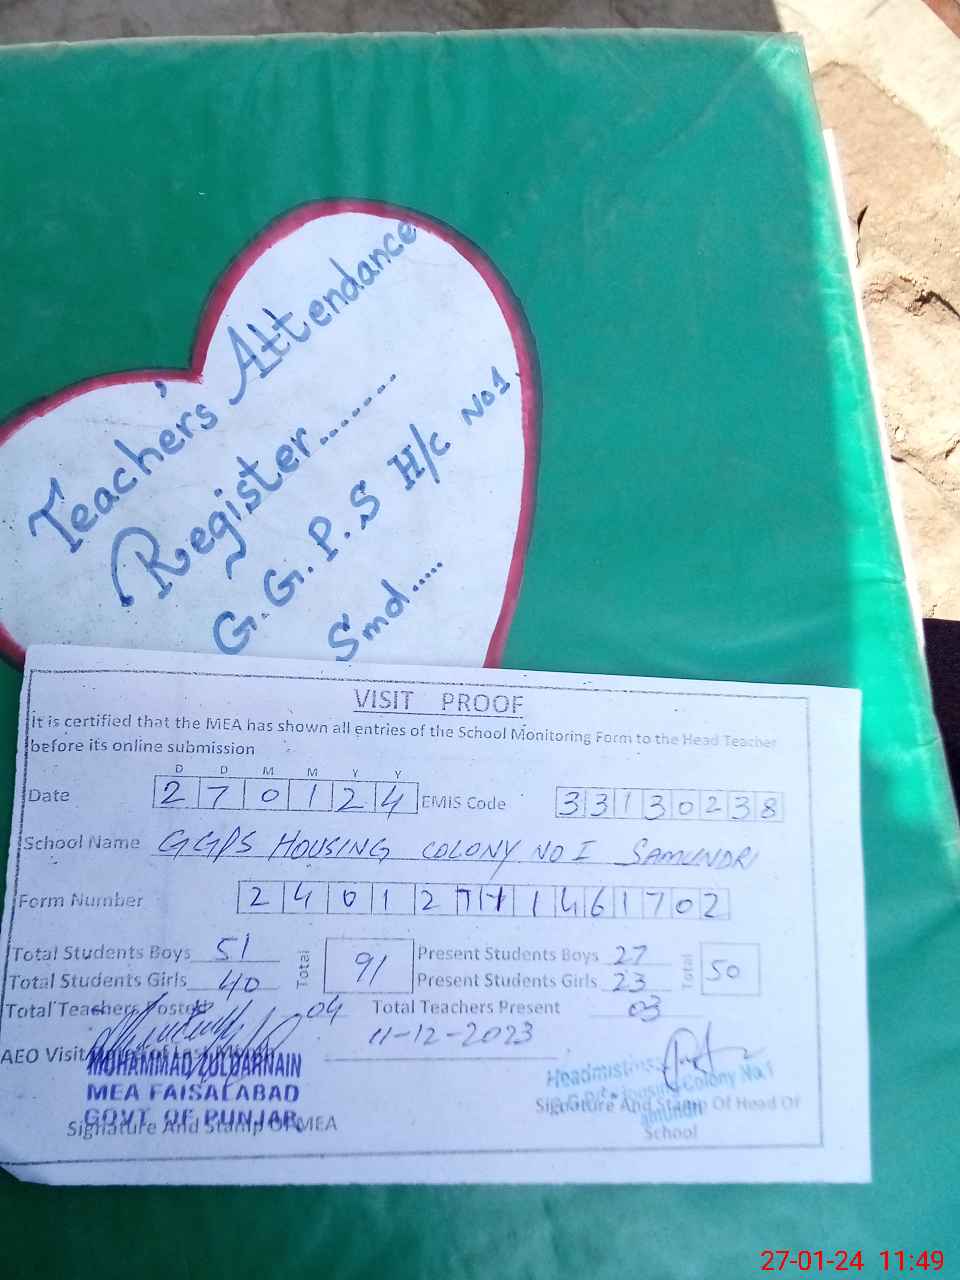 Teacher's Attendance
Register.......
G.G.P.S H/c No1.
Smd.....
VISIT PROOF
It is certified that the MEA has shown all entries of the School Monitoring Form to the Head Teacher
before its online submission
D D M M Y Y
Date 2 7 0 1 2 4 EMIS Code 3 3 1 3 0 2 3 8
School Name GGPS HOUSING COLONY NO I SAMUNDRI
Form Number 2 4 0 1 2 7 1 1 4 6 1 7 0 2
Total Students Boys 51 Total 91 Present Students Boys 27 Total 50
Total Students Girls 40 Present Students Girls 23
Total Teachers Posted 04 Total Teachers Present 03
AEO Visit Last 11-12-2023
MUHAMMAD ZULQARNAIN
MEA FAISALABAD
GOVT. OF PUNJAB
Signature And Stamp Of MEA
Headmistress
Housing Colony No.1
Signature And Stamp Of Head Of
School
27-01-24 11:49